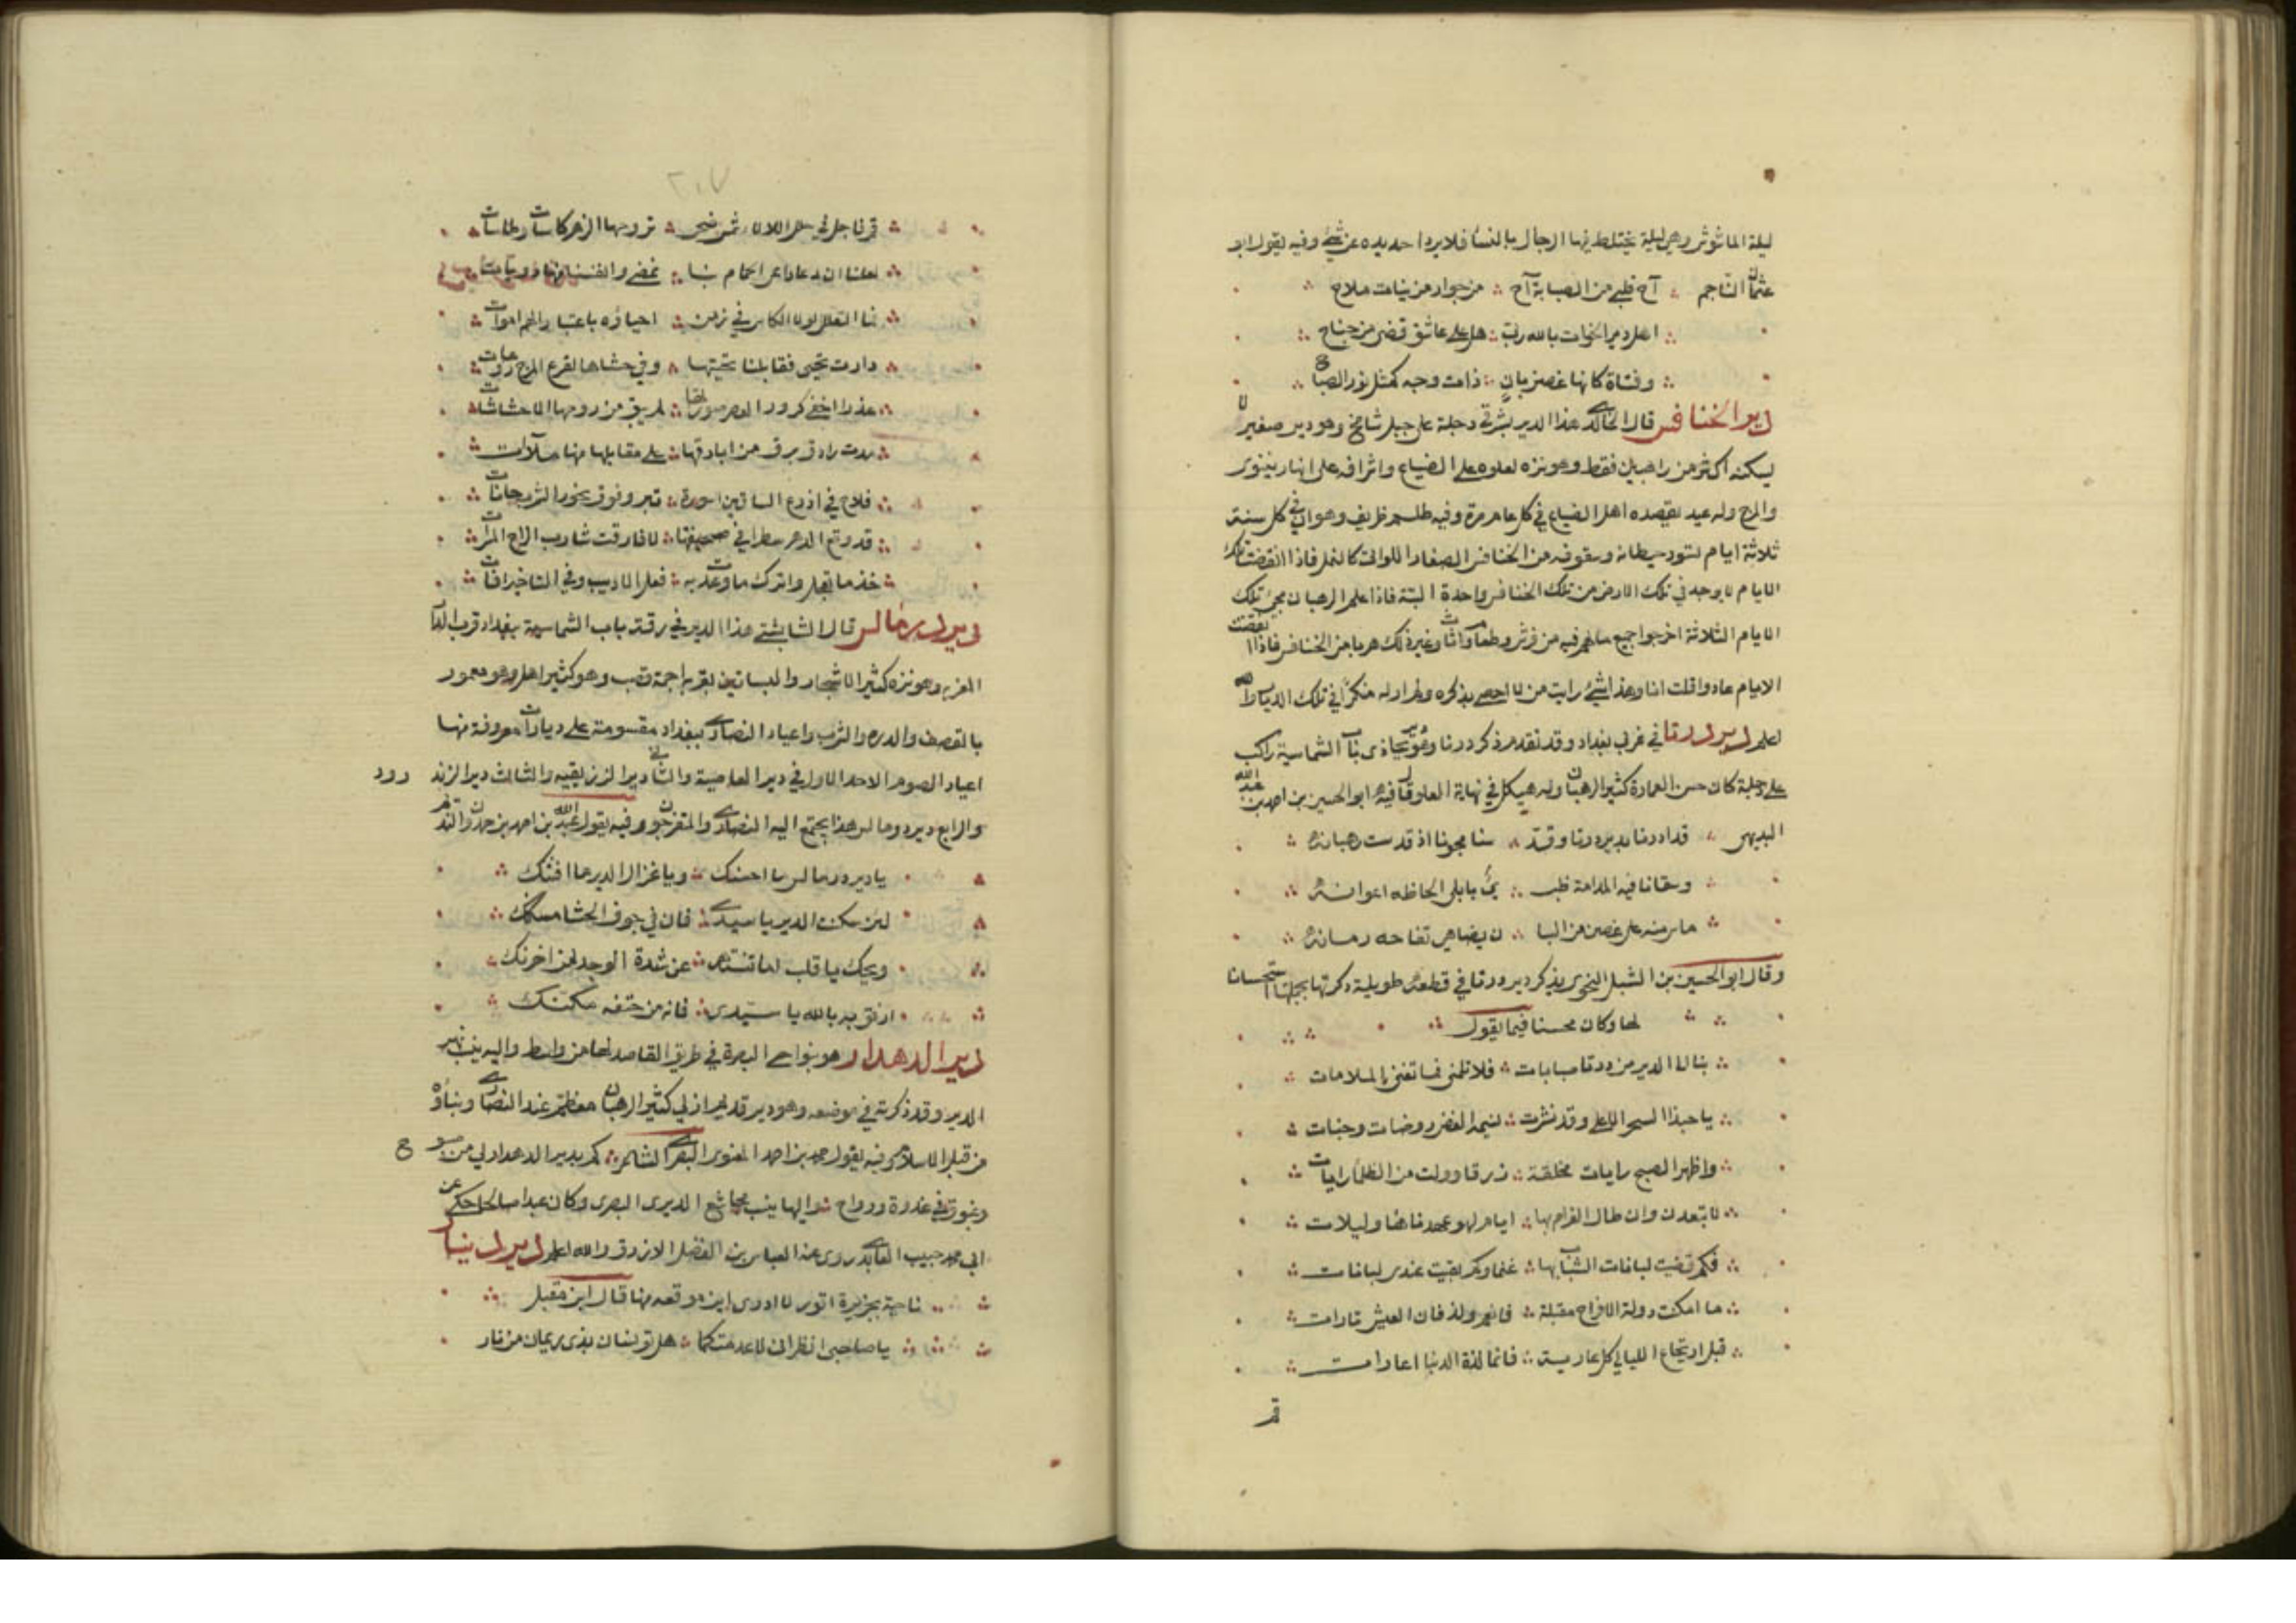 ليلة الماشوش وهي ليلة يختلط فيها الرجال بالنسا فلا يرد احد يده عن شي وفيه يقول ابو
عثمان الناجم آح قلبي من الصبابة آح من جوار مزينات ملاح
اهل دير الخوات بالله ربي هل على عاشق قضى من جناح
وفتاة كانها غصن بان ذات وجه كمثل نور الصباح
دير الخنافس قال الخالدي هذا الدير بشرقي دجلة على جبل شامخ وهو دير صغير لا
يسكنه اكثر من راهبين فقط وهو نزه لعلوه على الضياع واشرافه على انهار نينوى
والمرج وله عيد يقصده اهل الضياع في كل عام مرة وفيه طلسم ظريف وهو ان في كل سنة
ثلاثة ايام تسود حيطانه وسقوفه من الخنافس الصغار اللواتي كالنمل فاذا انقضت تلك
الايام لا يوجد في تلك الارض من تلك الخنافس واحدة البتة فاذا علم الرهبان مجئ تلك
الايام الثلاثة اخرجوا جميع ما لهم فيه من فرش وطعام واثاث وغير ذلك هربا من الخنافس فاذا انقضت
الايام عادوا قلت انا وهذا شئ رايت من لا احصي يذكره ولم ار له منكرا في تلك الديار والله
اعلم دير درتا في غربي بغداد وقد تقدم ذكر درتا وهو يحاذي باب الشماسية راكب
على دجلة كان حسن العمارة كثير الرهبان وله هيكل في نهاية العلو قال فيه ابو الحسين بن احمد بن عبد الله
البديهي قد ادرنا بدير درتا وقد سنا مجونا اذ قدست رهبانه
وسقانا فيه المدامة ظبي بابلي الحاظه اعوانه
ماس منه على غصن من البا ن يضاهي تفاحه رمانه
وقال ابو الحسين بن الشبل النحوي يذكر دير درتا في قطعة طويلة ذكرتها بجملتها استحسانا
لها وكان محسنا فيما يقول
بنا الى الدير من درتا صبابات فلا تلمني فما تغني الملامات
يا حبذا السحر الاعلى وقد نشرت نسيمه الغض روضات وجنات
واظهر الصبح رايات مخلقة زرقا وولت من الظلما رايات
لا تبعدن وان طال الغرام بها ايام لهو عهدناها وليلات
فكم قضيت لبانات الشباب بها غنما وكم بقيت عندي لبانات
ما امكنت دولة الافراح مقبلة فانعم ولذ فان العيش تارات
قبل ارتجاع الليالي كل عارية فانما لذة الدنيا اعارات
قم
٢٠٧
قم فاجل في حلل اللالا شمس ضحى بروجها الزهر كاسات وطاسات
لعلنا ان دعا داعي الحمام بنا نمضي وانفسنا منها رويات
فما التعلل لولا الكاس في زمن احياؤه باعتبار الهم اموات
دارت تحيى فقابلنا تحيتها وفي حشاها لقرع المزج روعات
عذرا اخفى كرور العصر صورتها لم يبق من روحها الا حشاشات
مدت رادق برق من اباريقها على مقابلها منها ملآت
فلاح في اذرع الساقين اسورة تبر وفوق نحور الشرب جانات
قد وقع الدهر سطرا في صحيفتها لا فارقت شارب الراح المسرات
خذ ما تعجل واترك ما وعدت به فعل الاديب وفي التاخير افات
دير درمالس قال الشابشتي هذا الدير في رقة باب الشماسية ببغداد قرب الدار
المعزية وهو نزه كثير الاشجار والبساتين بقربه اجمة قصب وهو كثير اهل وهو معمور
بالقصف والدره والشرب واعياد النصارى ببغداد مقسومة على ديارات معروفة منها
اعياد الصوم الاحد الاول في دير العاصية والثاني دير الزريقيه والثالث دير الزند رود
والرابع دير درمالس هذا يجتمع اليه النصارى والمتفرجون وفيه يقول عبد الله بن احمد بن حمدون النديم
يا دير درمالس ما احسنك ويا غزال الدير ما افتنك
لئن سكنت الدير يا سيدي فان في جوف الحشا مسكنك
ويحك يا قلب اما تنتهي عن شدة الوجد لمن احزنك
ارفق به بالله يا سيدي فانه من حتفه مكنك
دير الدهدار هو بنواحي البصرة في طريق القاصد لها من واسط واليه ينسب نهر
الدير وقد ذكرته في موضعه وهو دير قديم ازلي كثير الرهبان معظم عند النصارى وبناؤه
من قبل الاسلام وفيه يقول محمد بن احمد المعنوي البصري الشاعر كم بدير الدهدار لي من صبوح
وغبوق في غدوة ورواح واليها ينسب مجاشع الديري البصري وكان عبدا صالحا حكى عن
ابي محمد حبيب العابد روى عنه العباس بن الفضل الازرق والله اعلم دير دينار
ناحية بجزيرة اقور لا ادري اين موقعه منها قال ابن مقبل
يا صاحبي انظراني لا عدمتكما هل تونسان بذي ريمان من نار